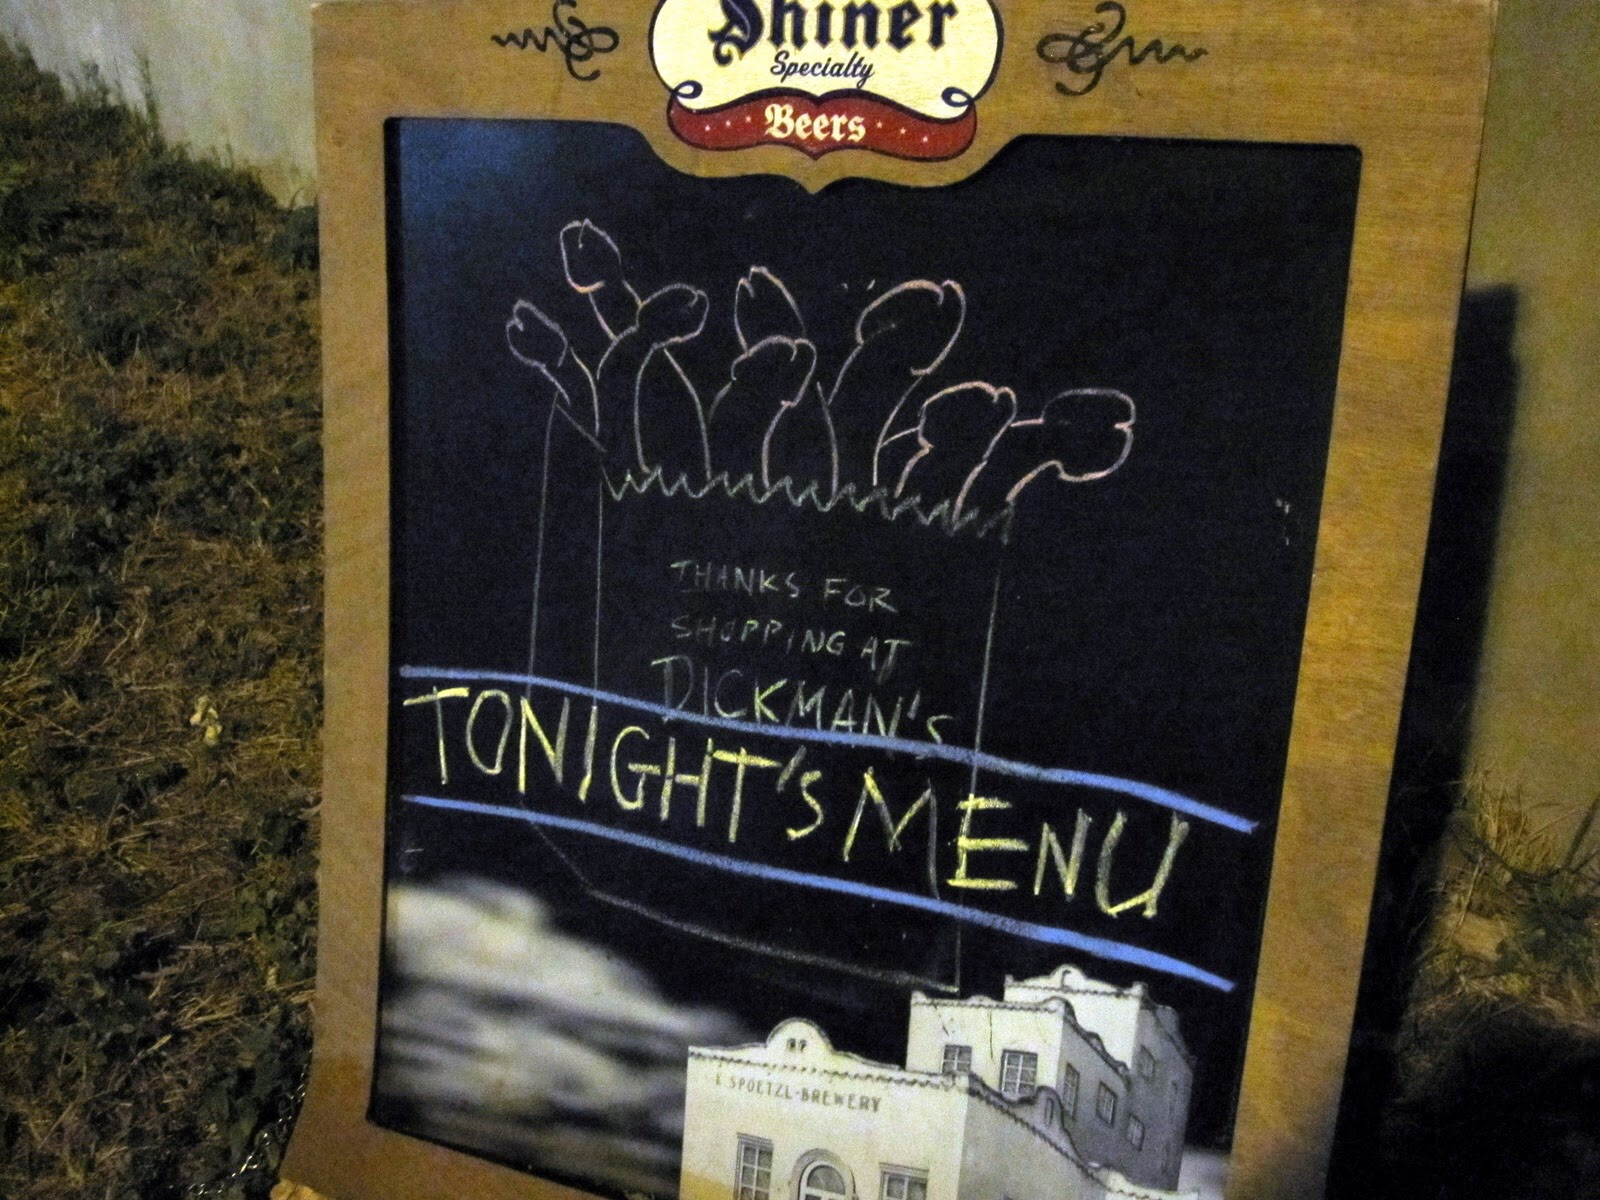 Shiner
Specialty
Beers
THANKS FOR
SHOPPING AT
DICKMAN'S
TONIGHT'S MENU
K. SPOETZL·BREWERY